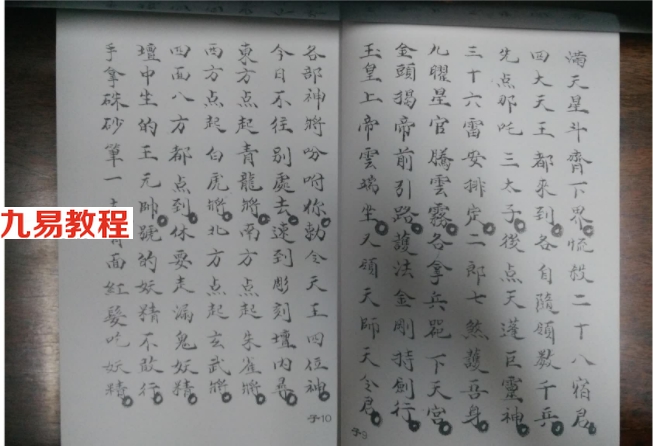 满天星斗齊下界 恍殺二十八宿君
四大天王都来到 各自隨領数千兵
先点那吒三太子 後点天蓬巨靈神
三十六雷安排定 二郎七煞護吾身
九曜星官騰雲霧 各拿兵器下天宫
金頭揭帝前引路 護法金剛持劍行
玉皇上帝雲端坐 又領天師天令君
手9
各部神將吩咐你 勅令天王四位神
今日不往别處去 速到彫刻壇内尋
東方点起青龍將 南方点起朱雀將
西方点起白虎將 北方点起玄武將
四面八方都点到 休要走漏鬼妖精
壇中生的王元帥 號的妖精不敢行
手拿硃砂筆一 面紅髮吃妖精
手10
九易教程